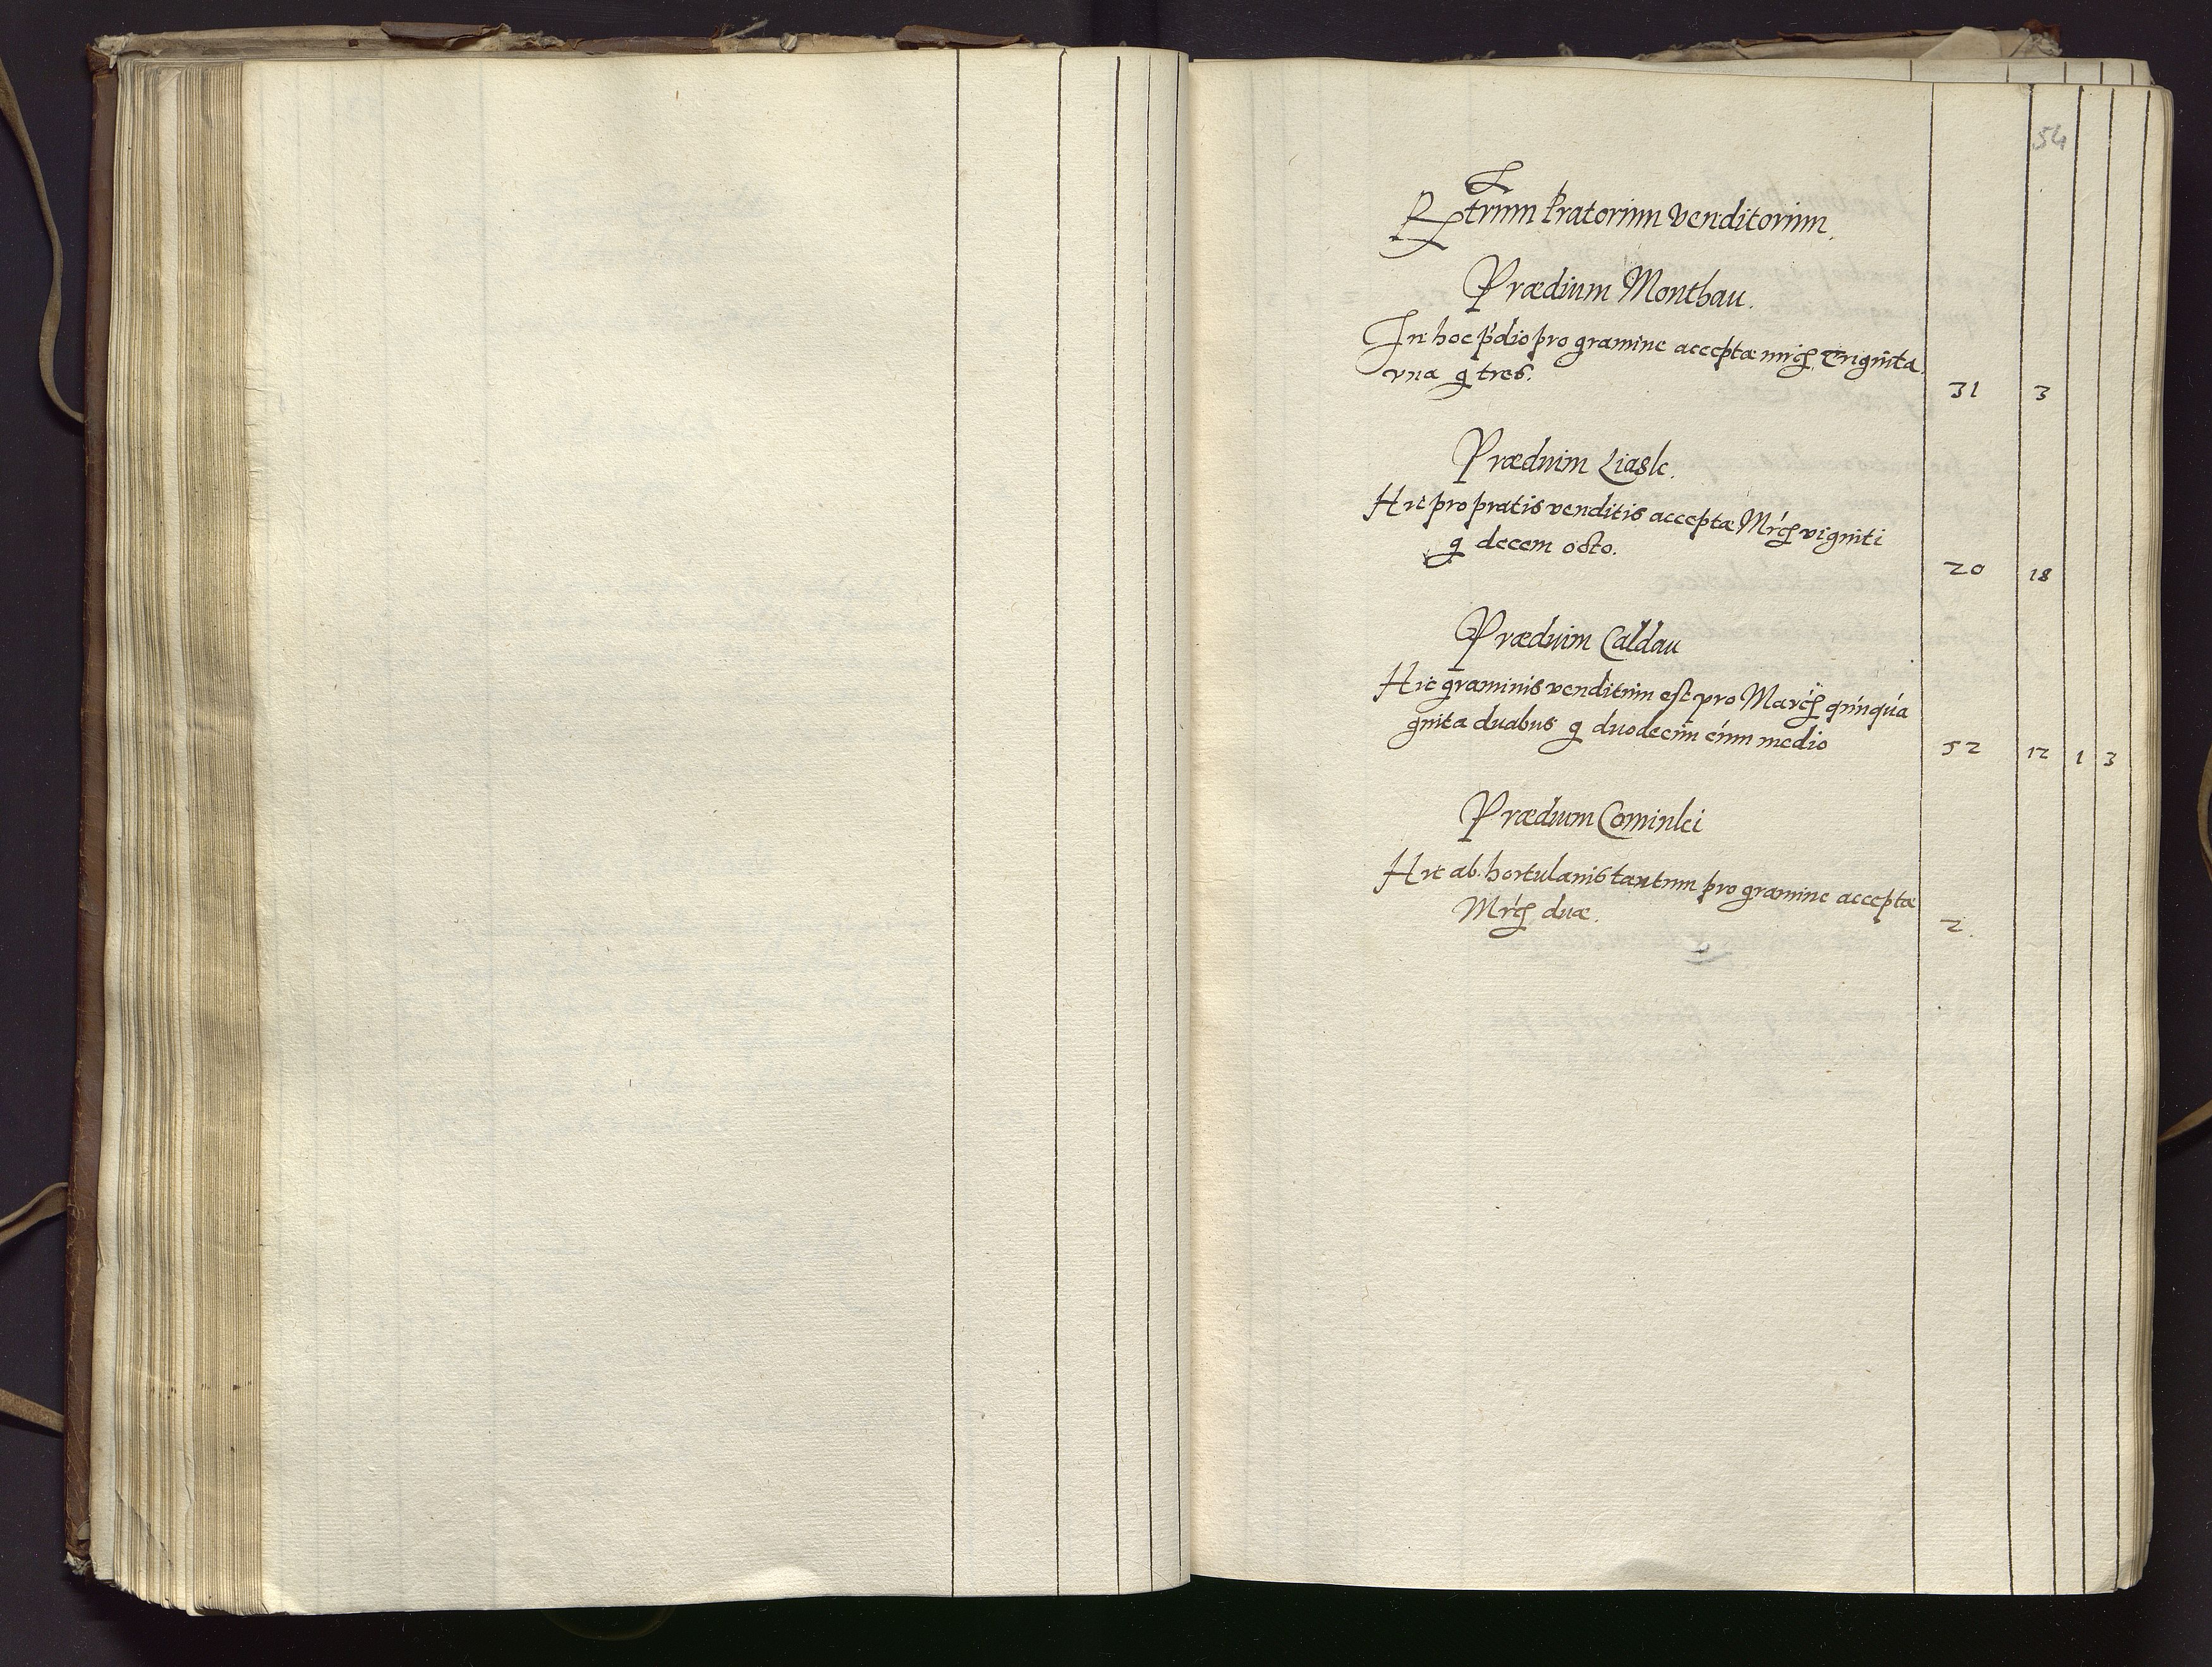 54
Rtrum Pratorum Venditorum.
Prædium Monthau.
In hoc p'dio pro gramine acceptæ mrcs Triginta
vna g tres. 31 3
Prædium Liask.
Hic pro pratis venditis acceptæ Mrcs viginti
g decem octo. 20 18
Prædium Caldau
Hic graminis venditum est pro Marcs quinqua
ginta duabus g duodecim cum medio 52 12 1 3
Prædium Cominlei
Hic ab hortulanis tantum pro gramine acceptæ
Mrcs duæ. 2.